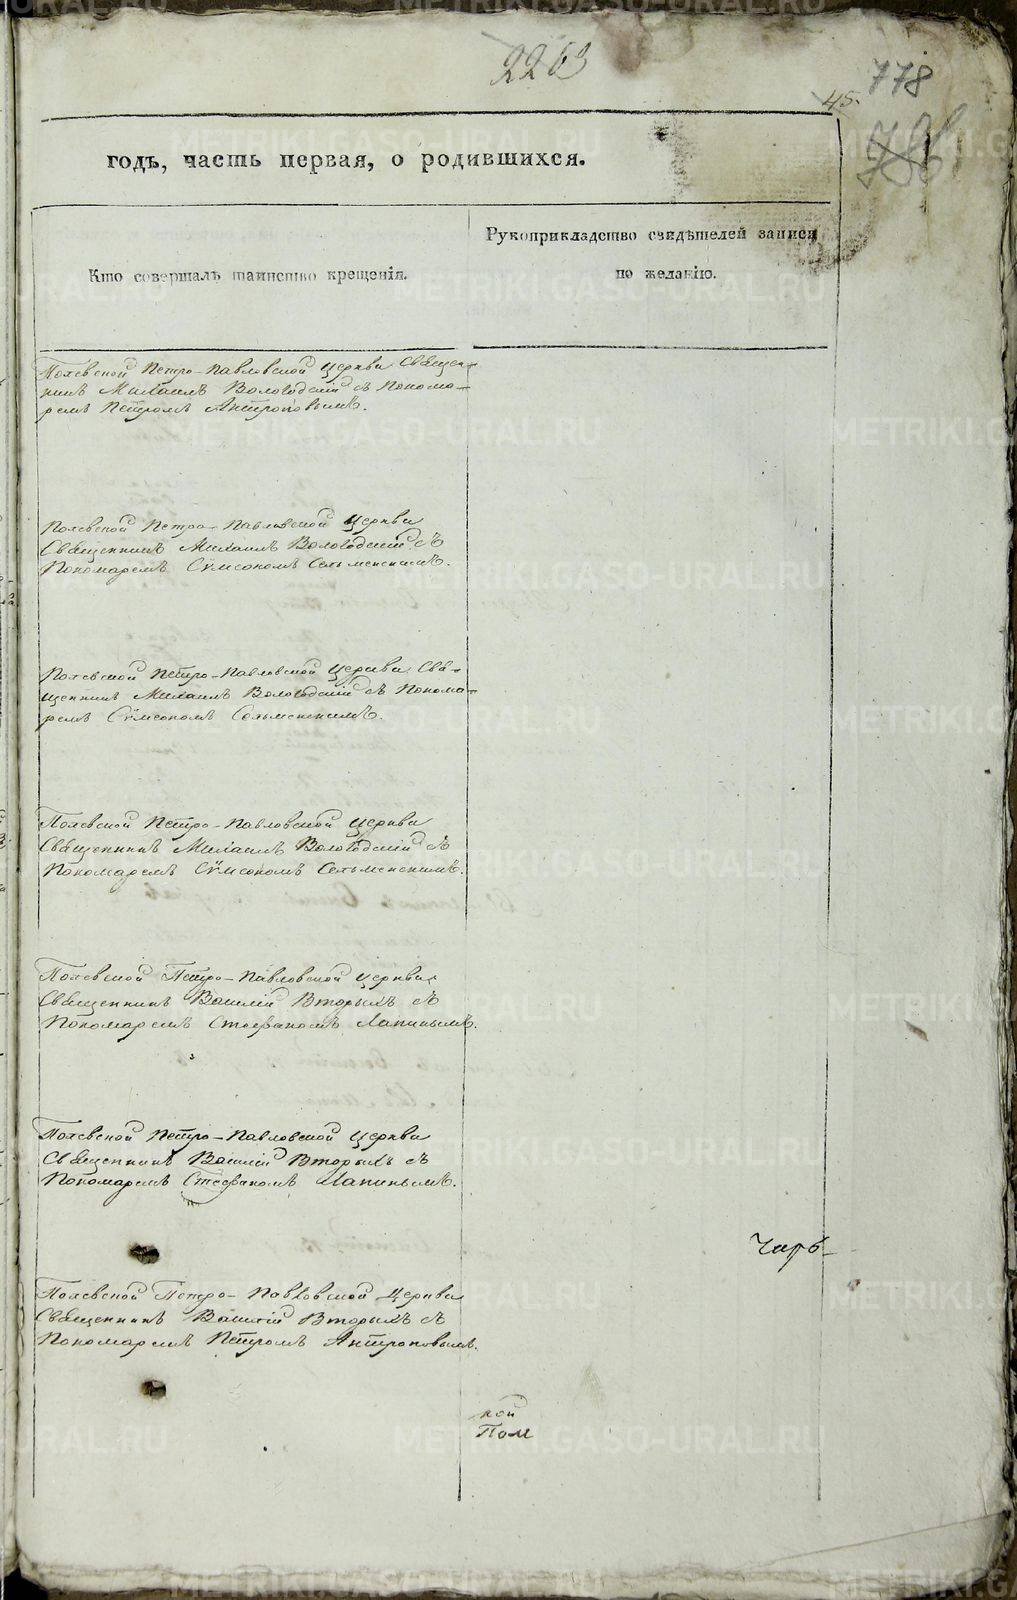 2263
778
45.
годъ, часть первая, о родившихся.
Кто совершалъ таинство крещенія.
Рукоприкладство свидѣтелей записи
по желанію.
Полевской Петро-Павловской Церкви Священ-
никъ Михаилъ Вологодскій съ Понома-
ремъ Петромъ Антроповымъ.
Полевской Петро-Павловской Церкви
Священникъ Михаилъ Вологодскій съ
Пономаремъ Сѵмеономъ Сельменскимъ.
Полевской Петро-Павловской Церкви Свя-
щенникъ Михаилъ Вологодскій съ Понома-
ремъ Сѵмеономъ Сельменскимъ.
Полевской Петро-Павловской Церкви
Священникъ Михаилъ Вологодскій съ
Пономаремъ Сѵмеономъ Сельменскимъ.
Полевской Петро-Павловской Церкви
Священникъ Василій Вторыхъ съ
Пономаремъ Стефаномъ Лапинымъ.
Полевской Петро-Павловской Церкви
Священникъ Василій Вторыхъ съ
Пономаремъ Стефаномъ Лапинымъ.
Полевской Петро-Павловской Церкви
Священникъ Василій Вторыхъ съ
Пономаремъ Петромъ Антроповымъ.
кой
METRIKI.GASO-URAL.RU